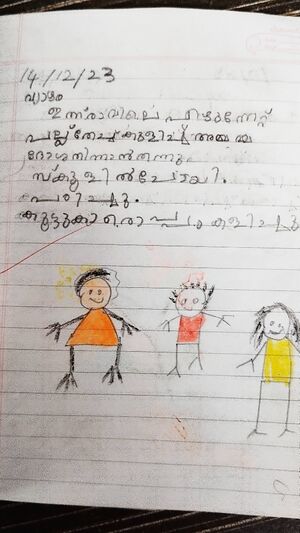 14/12/23
വ്യാഴം
ഇന്ന് രാവിലെ എഴുന്നേറ്റ്
പല്ല് തേച്ചു കുളിച്ചു അമ്മ
ദോശ തിന്നാൻ തന്നു
സ്കൂളിൽ പോയി.
പഠിച്ചു.
കൂട്ടുകാരൊപ്പം കളിച്ചു